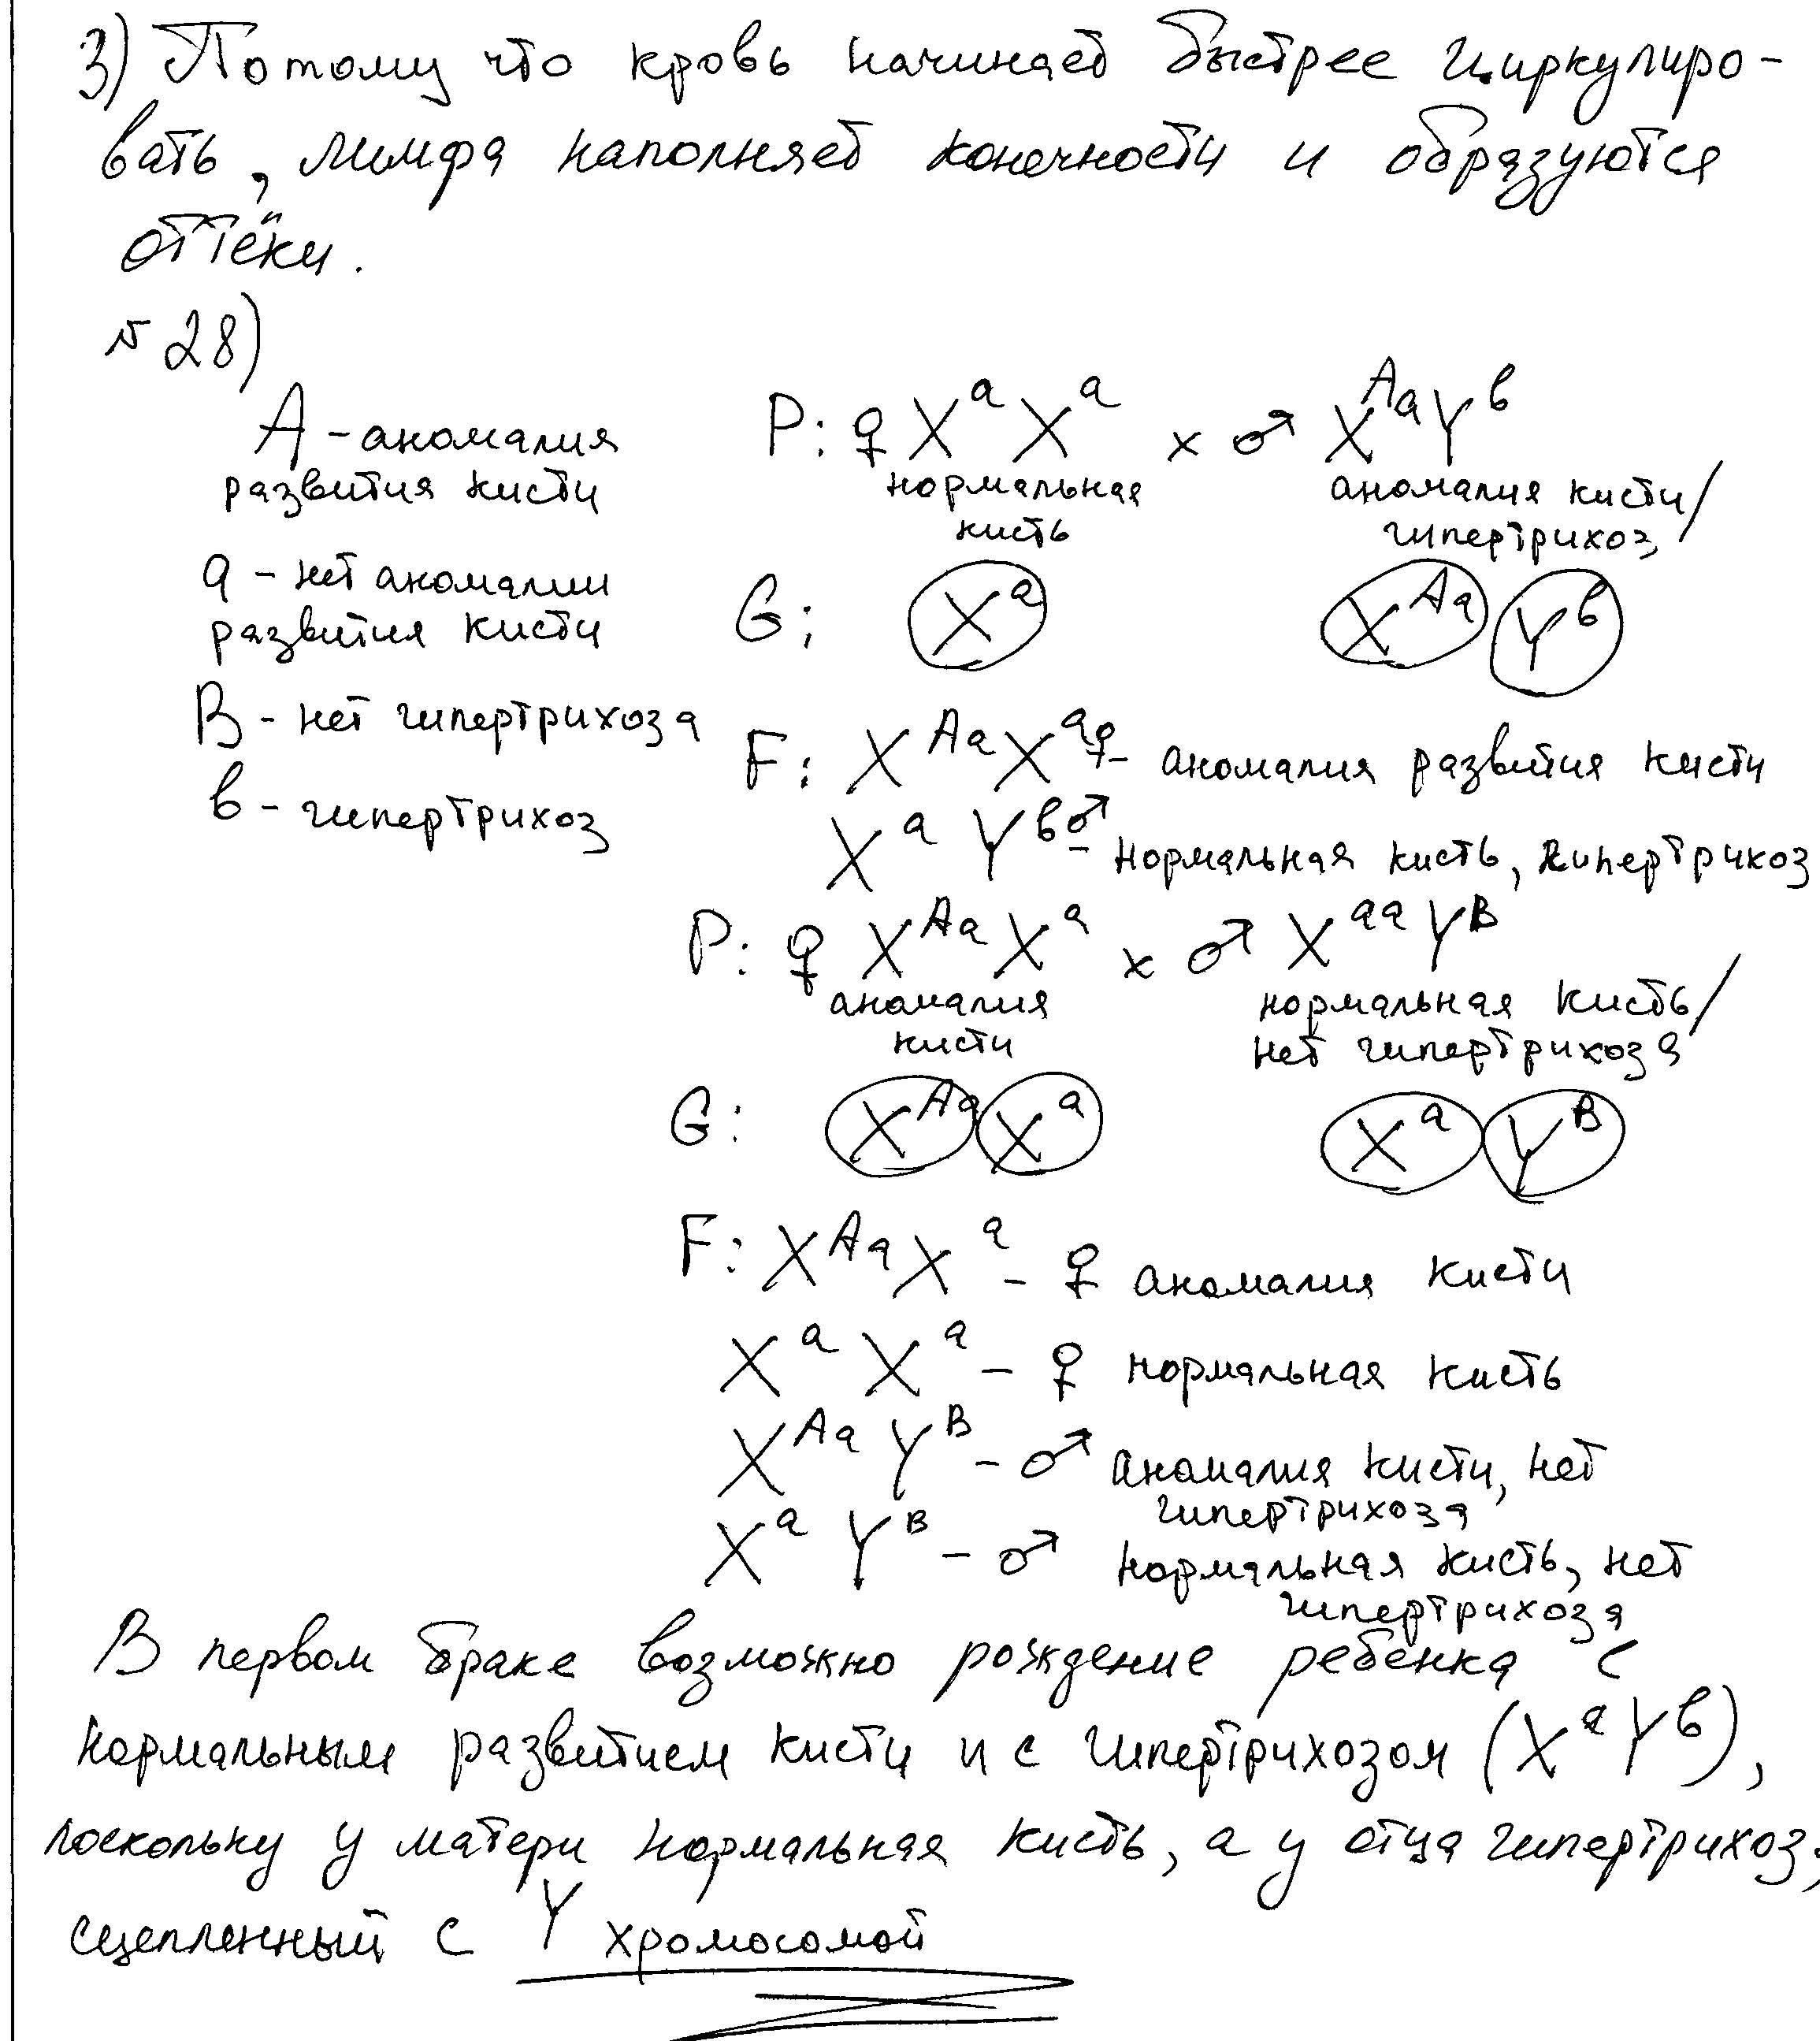 3) Потому что кровь начинает быстрее циркулиро-
вать, лимфа наполняет конечности и образуются
оттёки.
№28)
A - аномалия
развития кисти
a - нет аномалии
развития кисти
B - нет гипертрихоза
b - гипертрихоз
P: ♀ X^a X^a x ♂ X^Aa Y^b
нормальная кисть
аномалия кисти/
гипертрихоз
G: X^a X^Aa Y^b
F: X^Aa X^a ♀ - аномалия развития кисти
X^a Y^b ♂ - нормальная кисть, гипертрихоз
P: ♀ X^Aa X^a x ♂ X^aa Y^B
аномалия кисти
нормальная кисть/
нет гипертрихоза
G: X^Aa X^a X^a Y^B
F: X^Aa X^a - ♀ аномалия кисти
X^a X^a - ♀ нормальная кисть
X^Aa Y^B - ♂ аномалия кисти, нет
гипертрихоза
X^a Y^B - ♂ нормальная кисть, нет
гипертрихоза
В первом браке возможно рождение ребенка с
нормальным развитием кисти и с гипертрихозом (X^a Y^b),
поскольку у матери нормальная кисть, а у отца гипертрихоз,
сцепленный с Y хромосомой